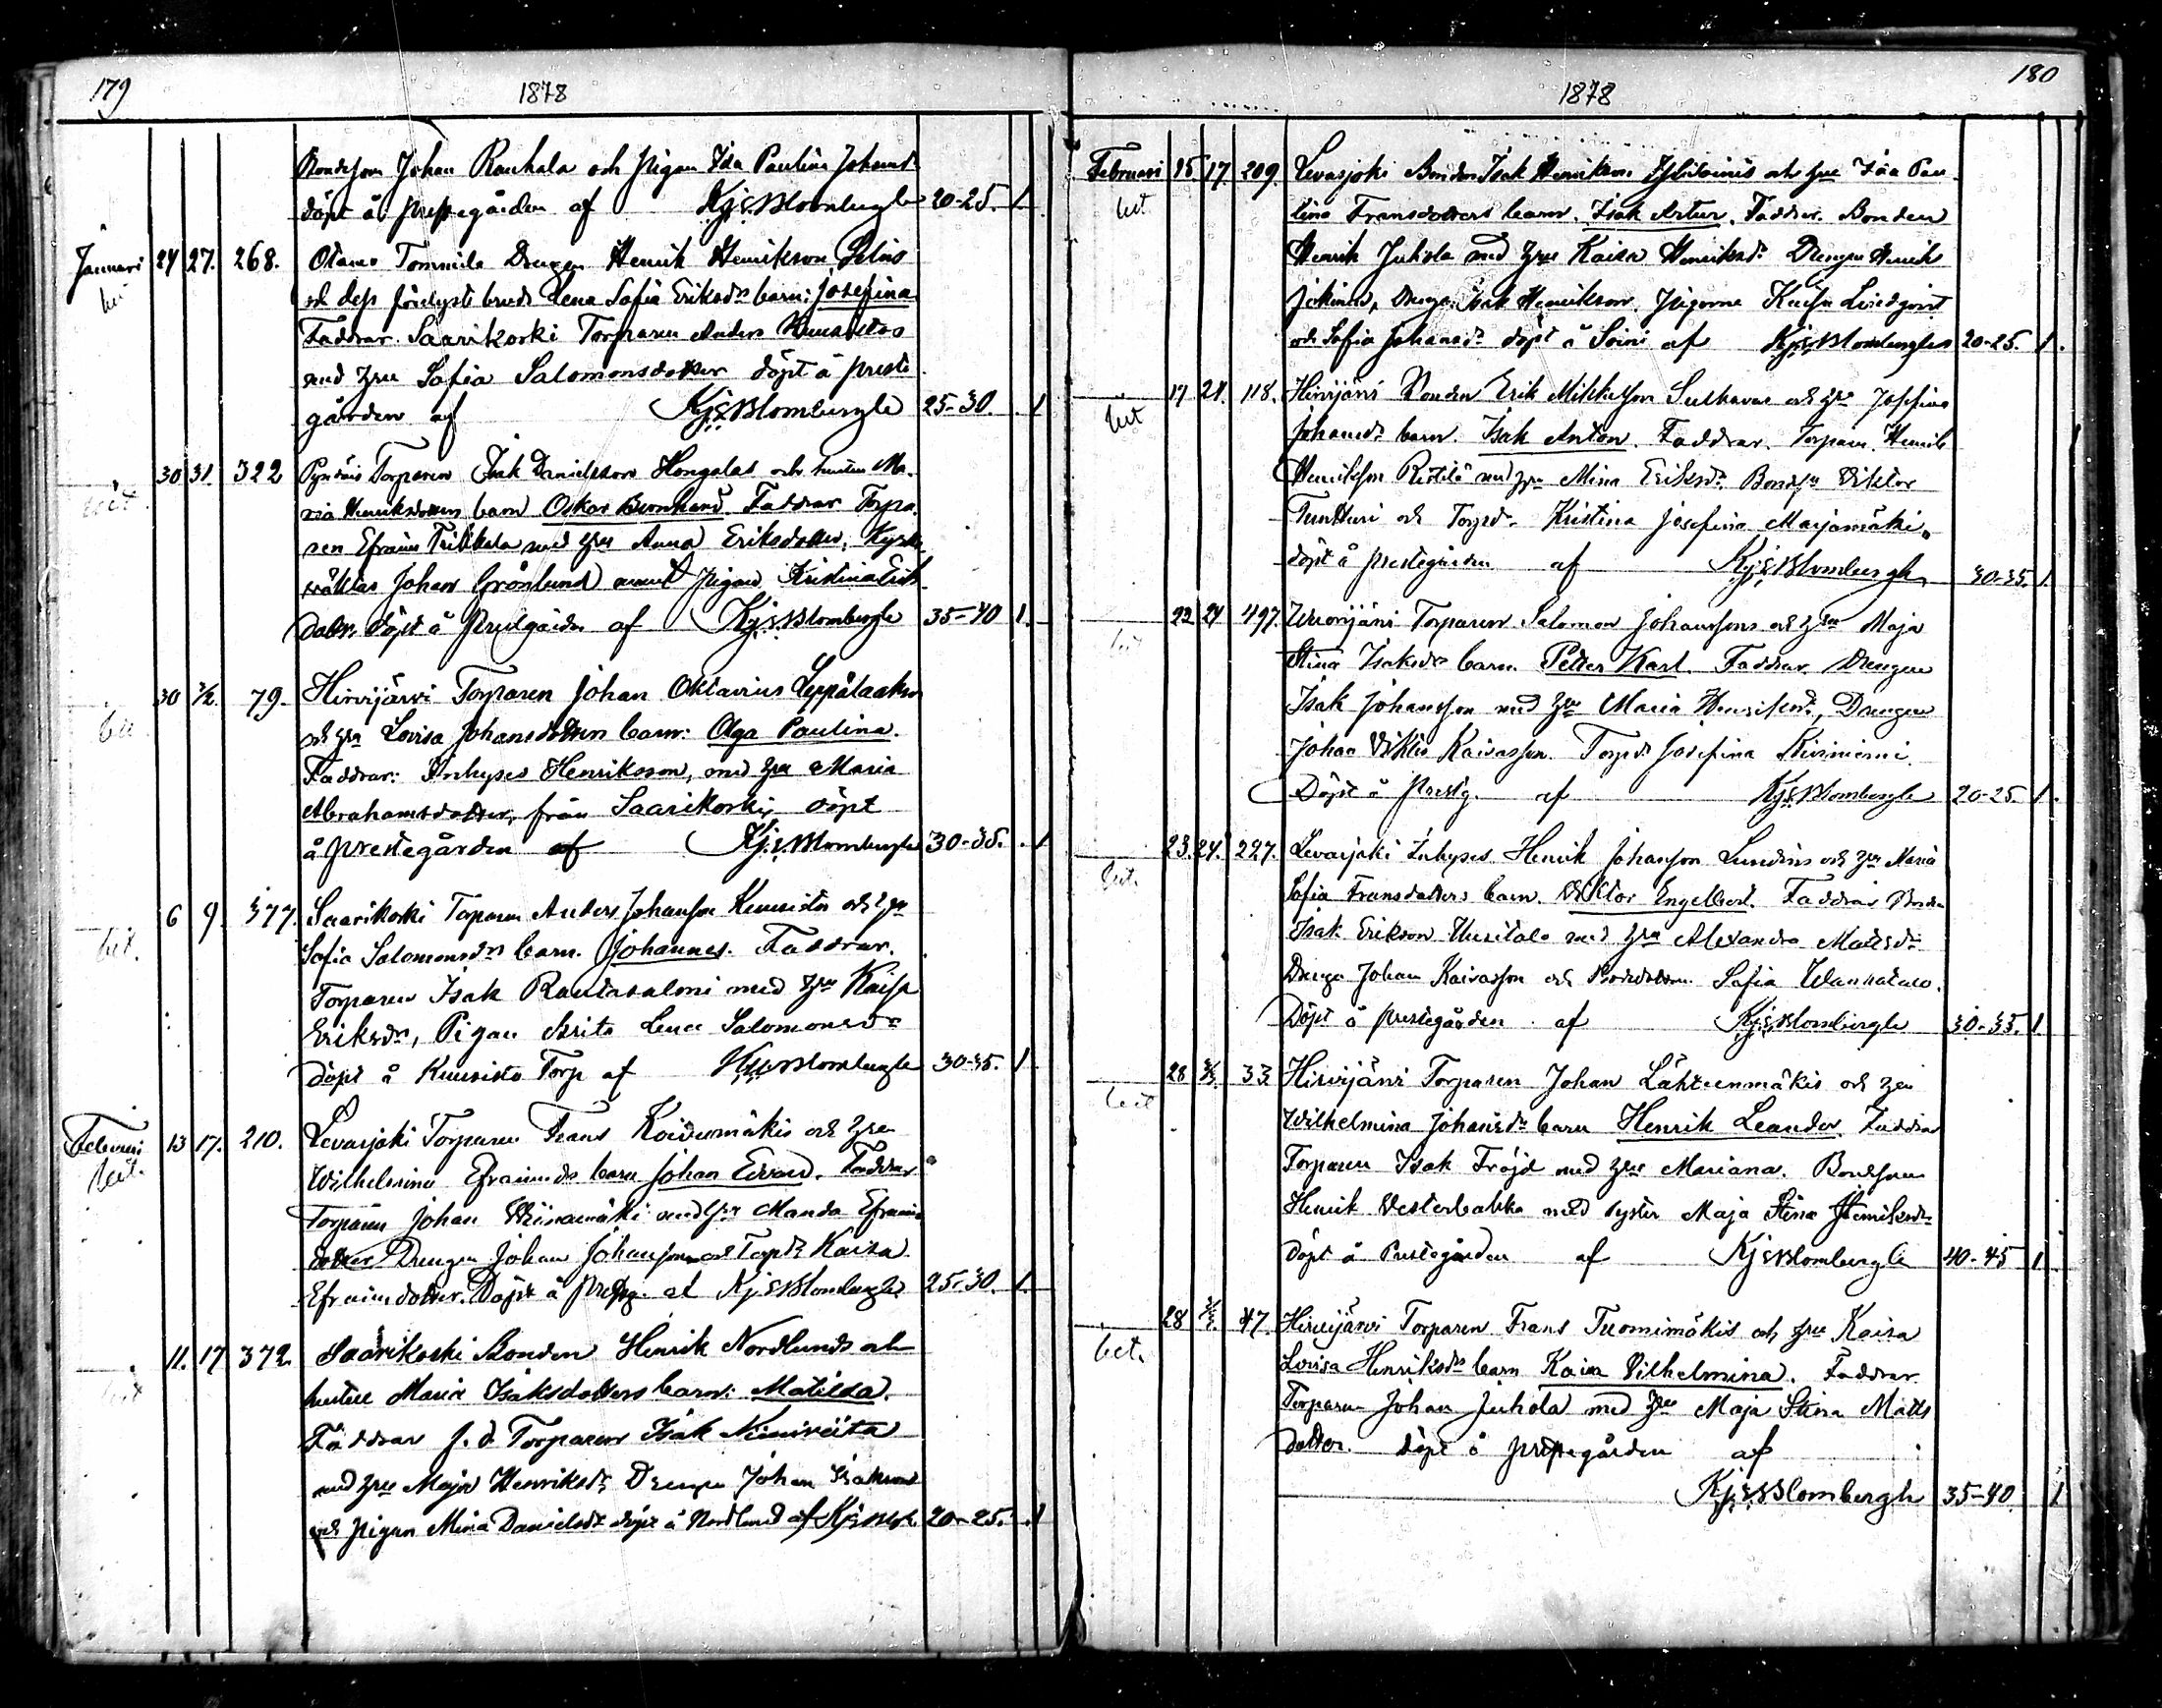 179
1878
Bondeson Johan Rauhala och pigan Ida Paulina Johansd:
döpt å prestegården af Kj: E: Blombergh 20-25. 1.
Januari 24 27. 268. Drengen Henrik Henrikson
och dess förelysta brud Lena Sofia Eriksdrs barn: Josefina
Faddrar. Saarikoski Torparen Anders Kuusistos
med hru Sofia Salomonsdotter döpt å preste
gården af Kj: E: Blombergh 25-30. 1
30 31. 322 Torparen Isak Danielsson Hongalas och hustru Ma-
ria Henriksdotters barn Oskar Bernhard. Faddrar Torpa-
ren Efraim med hru Anna Eriksdotter, Kyrko
väktar Johan Grönlund samt pigan Kristina Eriks
dotter. döpt å prestgården af Kj: E: Blombergh 35-40 1.
30 3/2. 79. Hirvijärvi Torparen Johan Oktavius Leppälaakso
och hru Lovisa Johansdotters barn: Olga Paulina.
Faddrar: Inhyses Henriksson, med hru Maria
Abrahamsdotter, från Saarikoski, döpt
å prestegården af Kj: E: Blombergh 30-35. 1
6 9. 377. Saarikoski Torparen Anders Johansson Kuusisto och hru
Sofia Salomonsdrs barn. Johannes. Faddrar.
Torparen Isak Rautasalmi med hru Kaisa
Eriksdr, Pigan Brita Lena Salomonsdr
döpt å Kuusisto Torp af Kj: E: Blombergh 30-35. 1
Februari 13 17. 210. Levasjoki Torparen Frans Koivumäkis och hru
Wilhelmina Efraimsds barn Johan Edvard. Faddrar
Torparen Johan med hru Manda Efraims
dotter Drengen Johan Johansson och Torpdr Kaisa
Efraimsdotter. Döpt å prestg. af Kj: E: Blombergh 25-30. 1.
11. 17 372. Saarikoski Bonden Henrik Nordlunds och
hustru Maria Isaksdotters barn: Matilda.
Faddrar f. d. Torparen Isak Niiniviita
med hru Maja Henriksdr Drengen Johan Isakson
och pigan Mina Danielsdr döpt å Nordlund af Kj: E: 20-25. 1
180
1878
Februari 15 17. 209. Levasjoki Bonden Isak Henrikson och hru Ida Pau
lina Fransdotters barn. Isak Artur. Faddrar. Bonden
Henrik Juhola med hru Kaisa Henriksdr Drengen Henrik
Drengen Isak Henrikson. Pigorna Kaisa Lindqvist
och Sofia Johansdr döpt å Soini af Kj: E: Blombergh 20-25. 1.
17 24. 118. Hirvijärvi Bonden Erik Mikkelson och hru Josefina
Johansdr barn. Isak Anton. Faddrar. Torparen Henrik
Henrikson Ristilä med hru Mina Eriksdr Bondson Viktor
Tuntturi och Torpdr Kristina Josefina Marjamäki.
döpt å prestegården af Kj: E: Blombergh 30-35. 1.
22 24 497. Torparen Salomon Johanssons och hru Maja
Stina Isaksdrs barn. Petter Karl. Faddrar. Drengen
Isak Johansson med hru Maria Henriksdr, Drengen
Johan Viktor Kaivasson. Torpdr Josefina Kiviniemi.
Döpt å prestg. af Kj: E: Blombergh 20-25. 1.
23. 24. 227. Levasjoki Inhyses Henrik Johanson Lundins och hru Maria
Sofia Fransdotters barn. Viktor Engelbert. Faddrar Bonden
Isak Erikson Uusitalo med hru Alexandra Mattsdr
Drengen Johan Kaivasson och Bondedottern Sofia Wanhatalo.
Döpt å prestegården af Kj: E: Blombergh 30-35. 1.
28 3/3 33. Hirvijärvi Torparen Johan Lähteenmäkis och hru
Wilhelmina Johansdrs barn Henrik Leander. Faddrar
Torparen Isak Fröjd med hru Mariana. Bondsonen
Henrik Vesterbakka med syster Maja Stina Henriksdr
döpt å Prestegården af Kj: E: Blombergh 40-45 1
28 3/3. 47. Hirvijärvi Torparen Frans Tuomimäkis och hru Kaisa
Lovisa Henriksdrs barn Kaisa Vilhelmina. Faddrar.
Torparen Johan Juhola med hru Maja Stina Matts
dotter. döpt å prestegården af
Kj: E: Blombergh 35-40 1